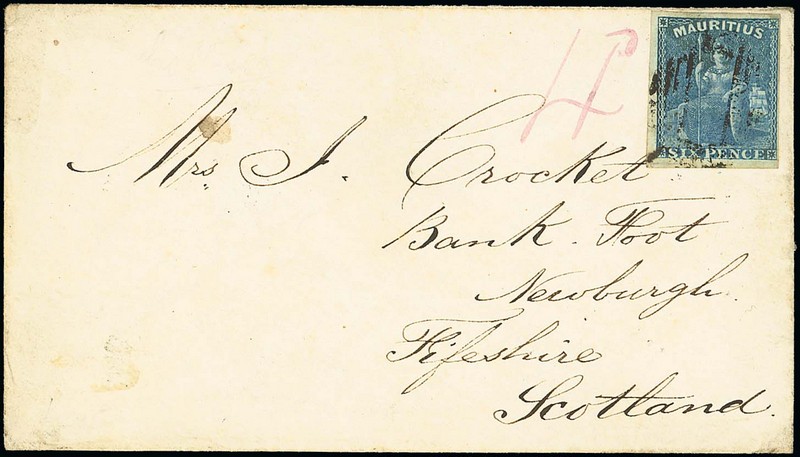 MAURITIUS
SIX PENCE
4
Mrs J. Crocket
Bank. Foot
Newburgh.
Fifeshire
Scotland.